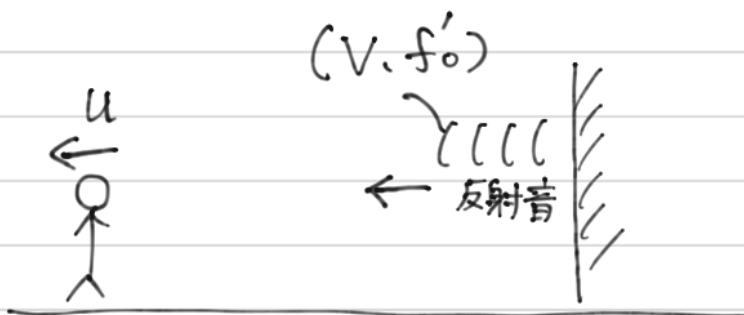 (V、f₀')
u
反射音